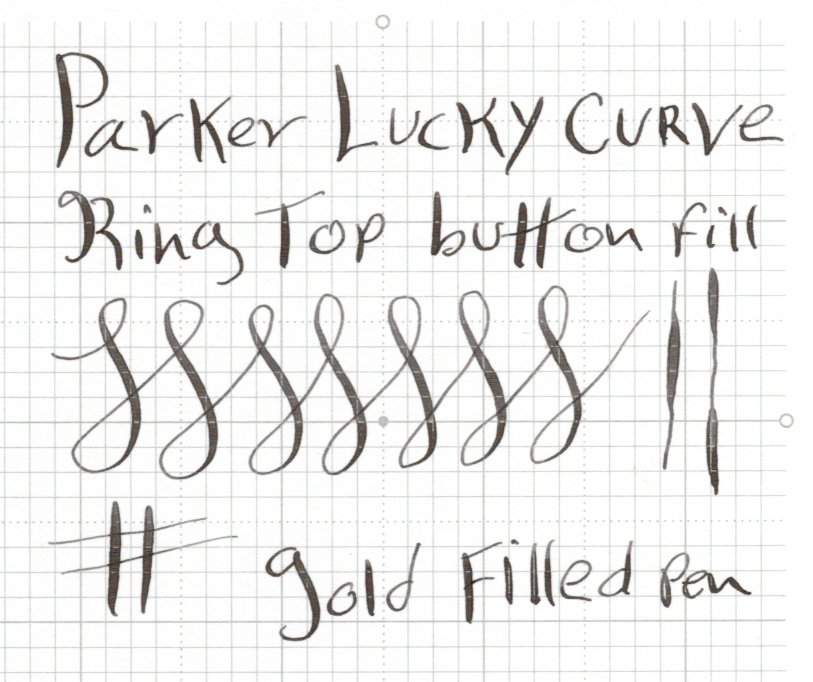 Parker Lucky Curve
Ring Top button fill
gold Filled pen